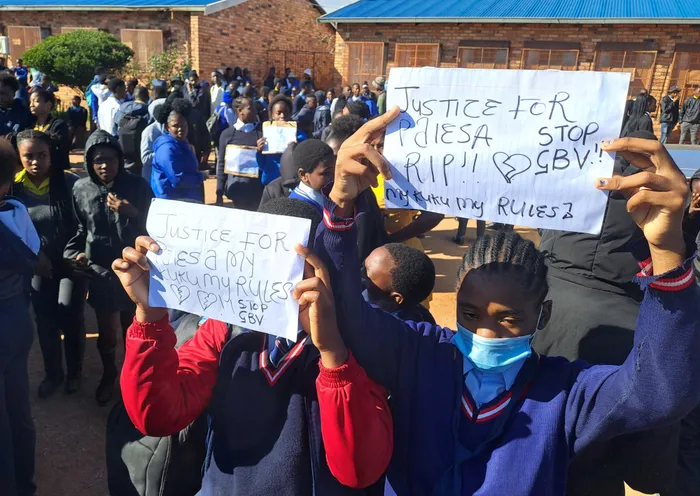 JUSTICE FOR
PALESA STOP
RIP!! ♡ GBV!!
my KUKU my RULES
JUSTICE FOR
my
KUKU my RULES
STOP
GBV